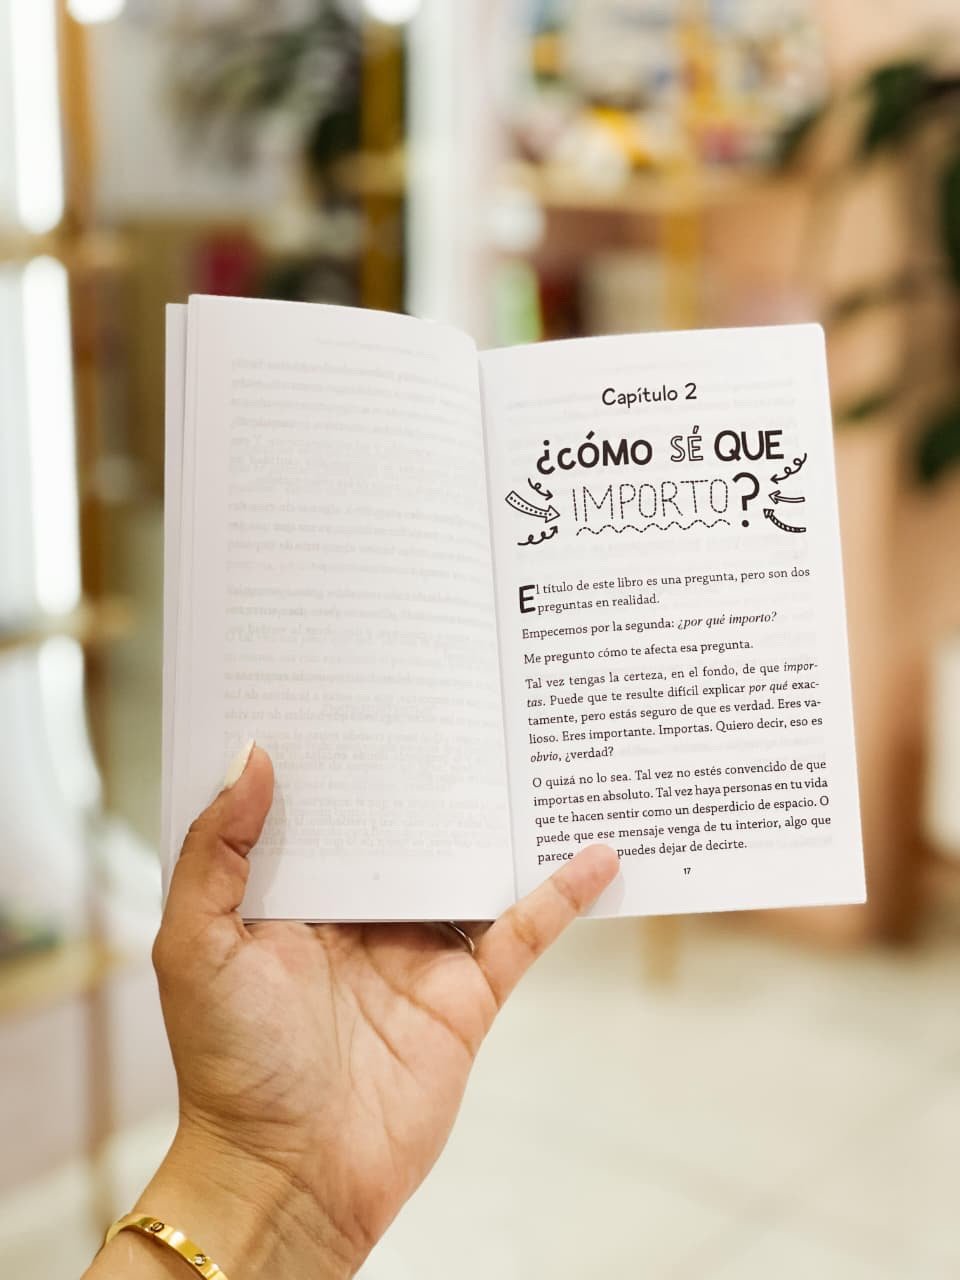 Capítulo 2
¿CÓMO SÉ QUE
IMPORTO?
El título de este libro es una pregunta, pero son dos
preguntas en realidad.
Empecemos por la segunda: ¿por qué importo?
Me pregunto cómo te afecta esa pregunta.
Tal vez tengas la certeza, en el fondo, de que impor-
tas. Puede que te resulte difícil explicar por qué exac-
tamente, pero estás seguro de que es verdad. Eres va-
lioso. Eres importante. Importas. Quiero decir, eso es
obvio, ¿verdad?
O quizá no lo sea. Tal vez no estés convencido de que
importas en absoluto. Tal vez haya personas en tu vida
que te hacen sentir como un desperdicio de espacio. O
puede que ese mensaje venga de tu interior, algo que
parece puedes dejar de decirte.
17